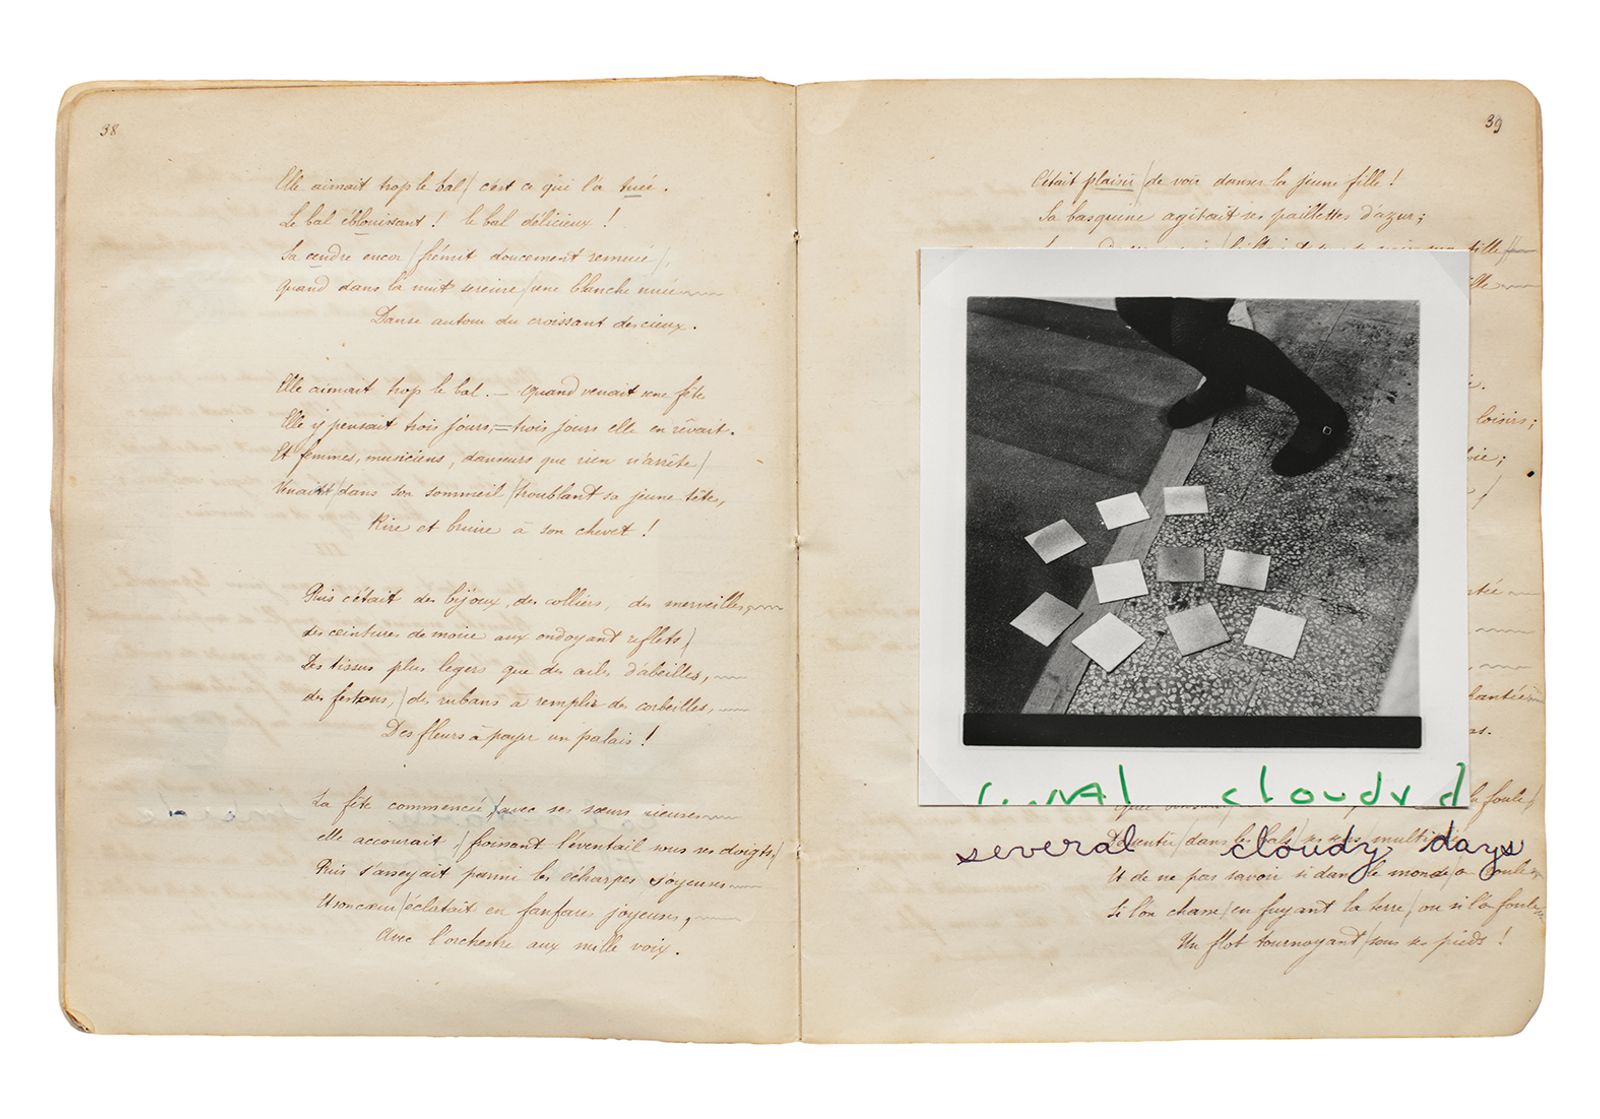 38
Elle aimait trop le bal / c'est ce qui l'a tuée.
Le bal éblouissant ! le bal délicieux !
Sa cendre encor / frémit doucement remuée /,
Quand dans la nuit sereine / une blanche nuée
Danse autour du croissant des cieux.
Elle aimait trop le bal. — Quand venait une fête
Elle y pensait trois jours, = trois jours elle en rêvait.
Et femmes, musiciens, danseurs que rien n'arrête /
Venaient / dans son sommeil / troublant sa jeune tête,
Rire et bruire à son chevet !
Puis c'était des bijoux, des colliers, des merveilles,
des ceintures de moire aux ondoyant reflets /
Des tissus plus legers que des ailes d'abeilles,
des festons, / des rubans à remplir des corbeilles,
Des fleurs à payer un palais !
La fête commencée / avec ses sœurs rieuses
elle accourait, / froissant l'éventail sous ses doigts, /
Puis s'asseyait parmi les écharpes soyeuses
Et son cœur / éclatait en fanfares joyeuses,
Avec l'orchestre aux mille voix.
39
C'était plaisir / de voir danser la jeune fille !
Sa basquine agitait ses paillettes d'azur ;
loisirs ;
la foule /
cloudy d
dans le bal
several cloudy days
Et de ne pas savoir si dans le monde / a
Si l'on chasse / en fuyant la terre / ou si l'on foule
Un flot tournoyant / sous ses pieds !